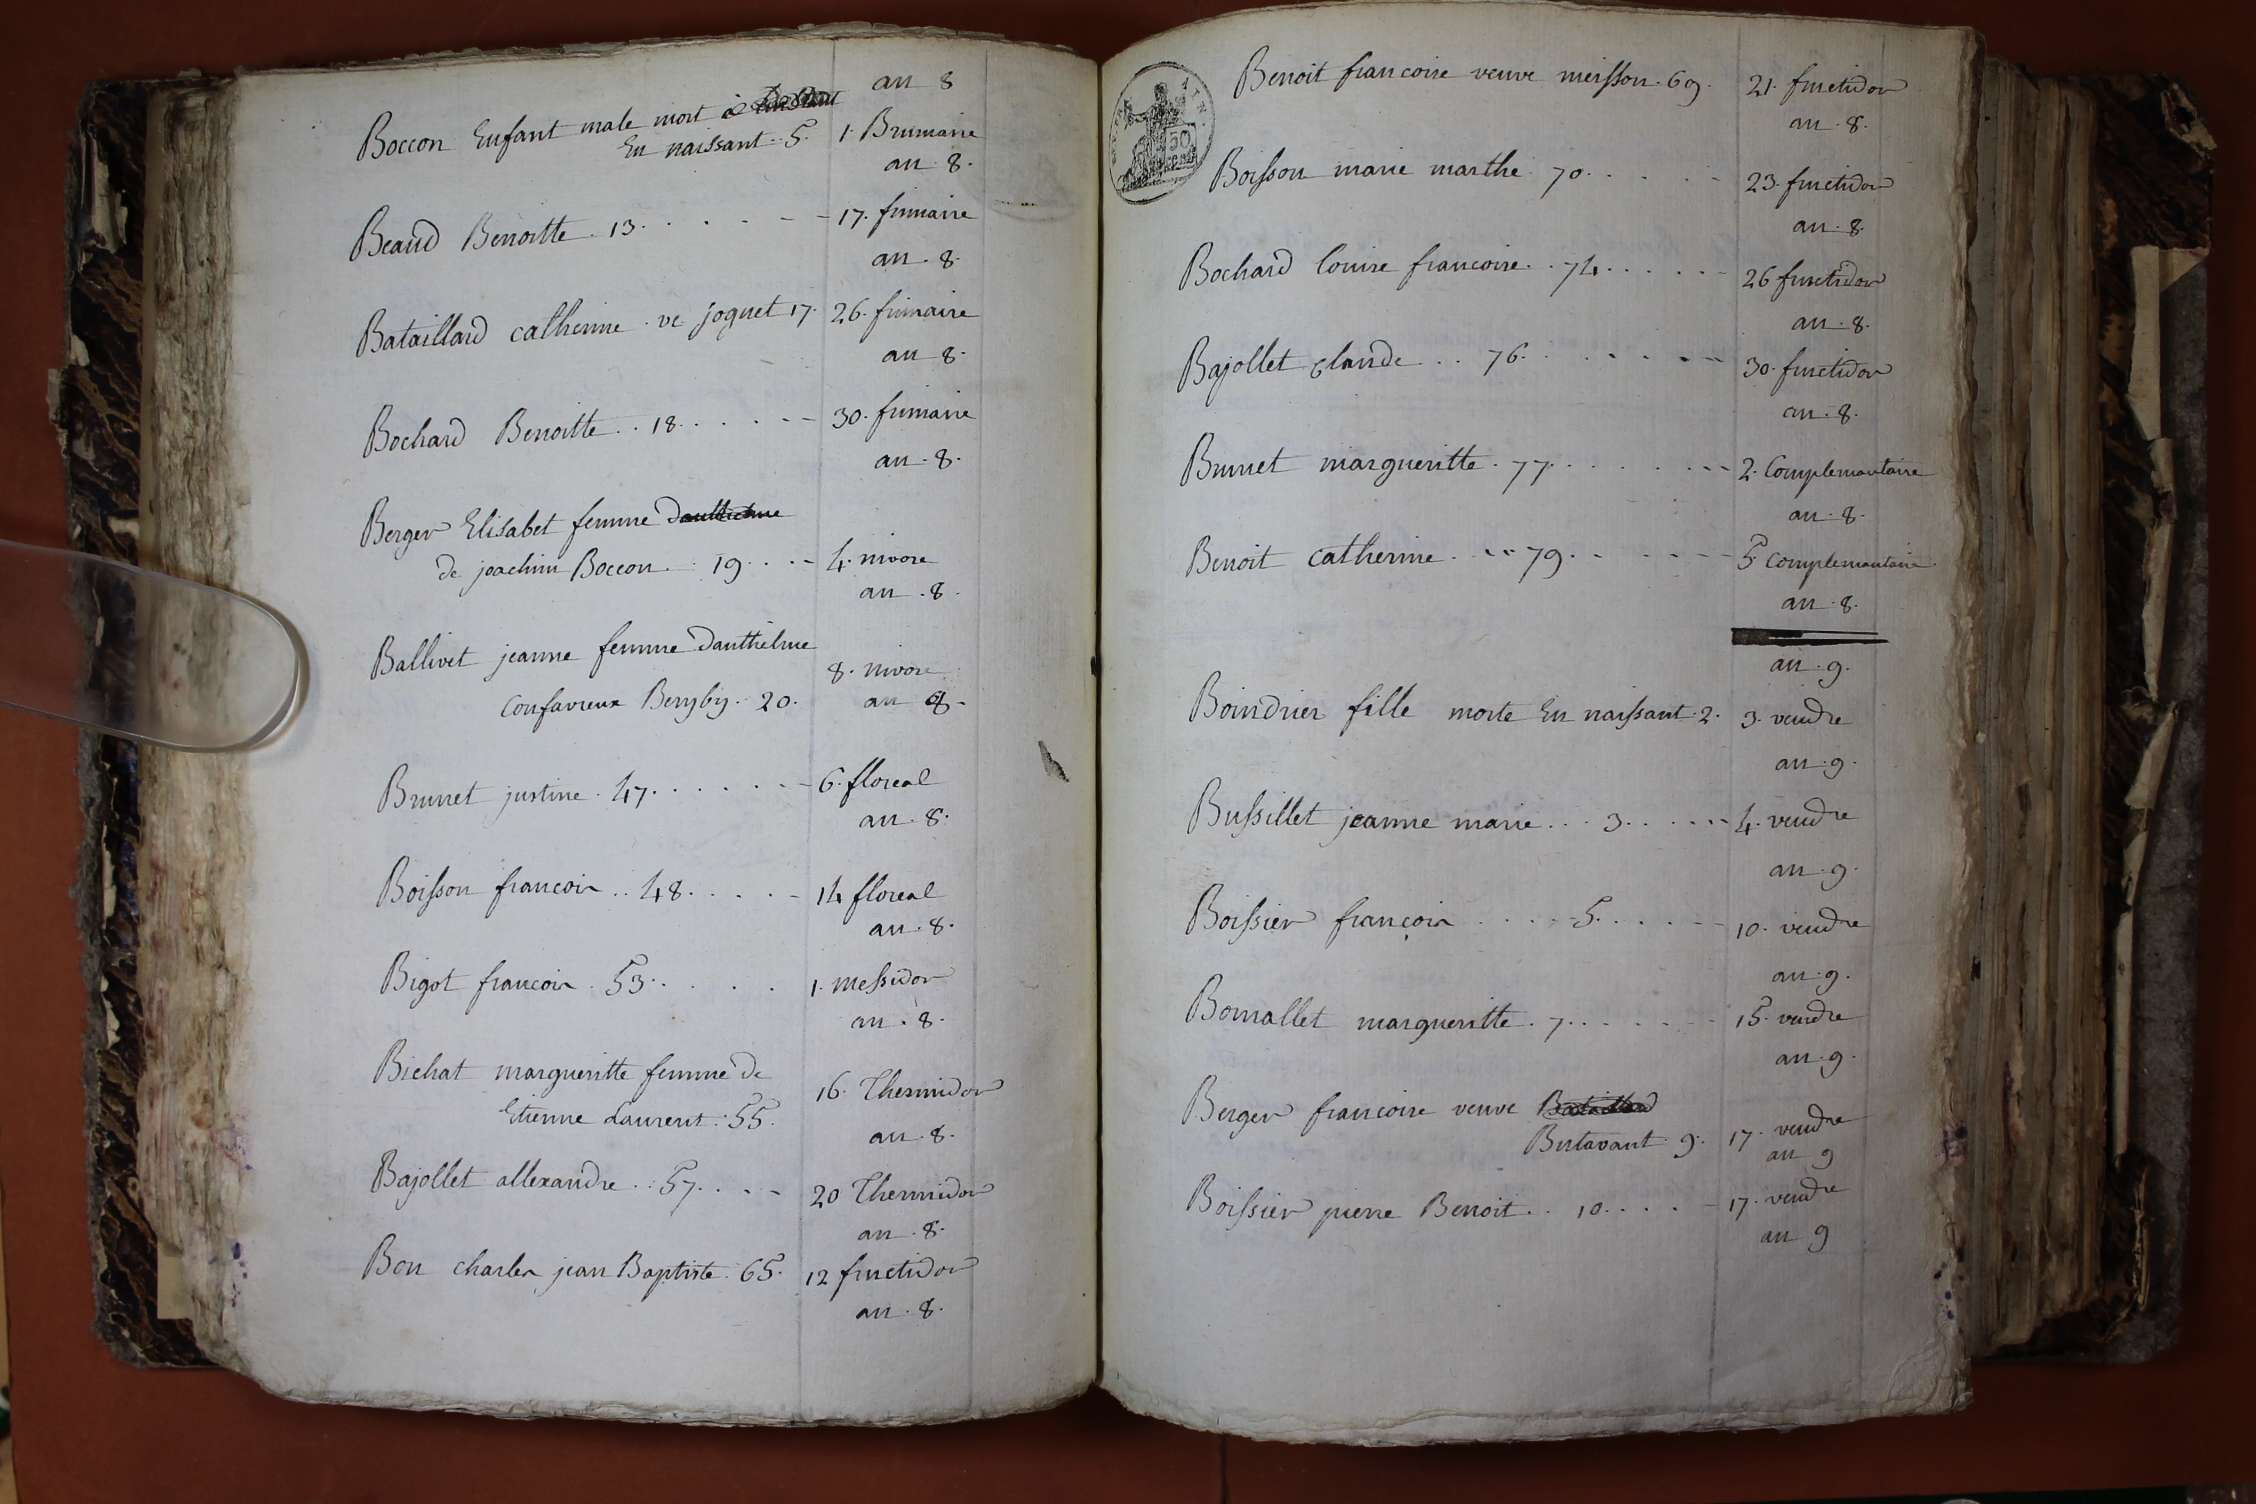 an 8
Boccon Enfant male mort à
En naissant. 5. 1. Brumaire
an. 8.
Beaud Benoitte. 13. 17. frimaire
an. 8.
Bataillard catherine. ve joguet 17. 26. frimaire
an 8.
Bochard Benoitte. 18. 30. frimaire
an. 8.
Berger Elisabet femme danthelme
de joachim Boccon. 19. 4. nivose
an. 8.
Ballivet jeanne femme danthelme 8. nivose
Confavreux Benyby. 20. an 8.
Brunet justine. 47. 6. floreal
an. 8.
Boisson francois. 48. 14 floreal
an. 8.
Bigot francois. 53. 1. messidor
an. 8.
Bichat margueritte femme de 16. Thermidor
Etienne Laurent. 55. an. 8.
Bajollet allexandre. 57. 20 Thermidor
an. 8.
Bon charles jean Baptiste. 65. 12 fructidor
an. 8.
50
Benoit francoise veuve meisson. 69. 21. fructidor
an. 8.
Boisson marie marthe. 70. 23. fructidor
an. 8.
Bochard louise francoise. 74. 26 fructidor
an. 8.
Bajollet claude. 76. 30. fructidor
an. 8.
Brunet margueritte. 77. 2. Complemantaire
an. 8.
Benoit catherine. 79. 5. Complemantaire
an. 8.
an. 9.
Boindrier fille morte En naissant. 2. 3. vendre
an. 9.
Bussillet jeanne marie. 3. 4. vendre
an. 9.
Boissier françois 5. 10. vendre
an. 9.
Bornallet margueritte. 7. 15. vendre
an. 9.
Berger francoise veuve Bataillard
Butavant 9. 17. vendre
an 9
Boissier pierre Benoit. 10. 17. vendre
an 9